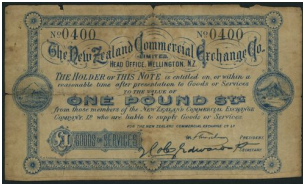 No 0400 No 0400
The New Zealand Commercial Exchange Co.
LIMITED.
HEAD OFFICE, WELLINGTON, N.Z.
THE HOLDER OF THIS NOTE is entitled on, or within a
reasonable time after presentation to Goods or Services
TO THE VALUE OF
ONE POUND STG
from those members of the NEW ZEALAND COMMERCIAL EXCHANGE
COMPANY, LD who are liable to supply Goods or Services
FOR THE NEW ZEALAND COMMERCIAL EXCHANGE CO LD
£1 GOODS OR SERVICES £1
PRESIDENT